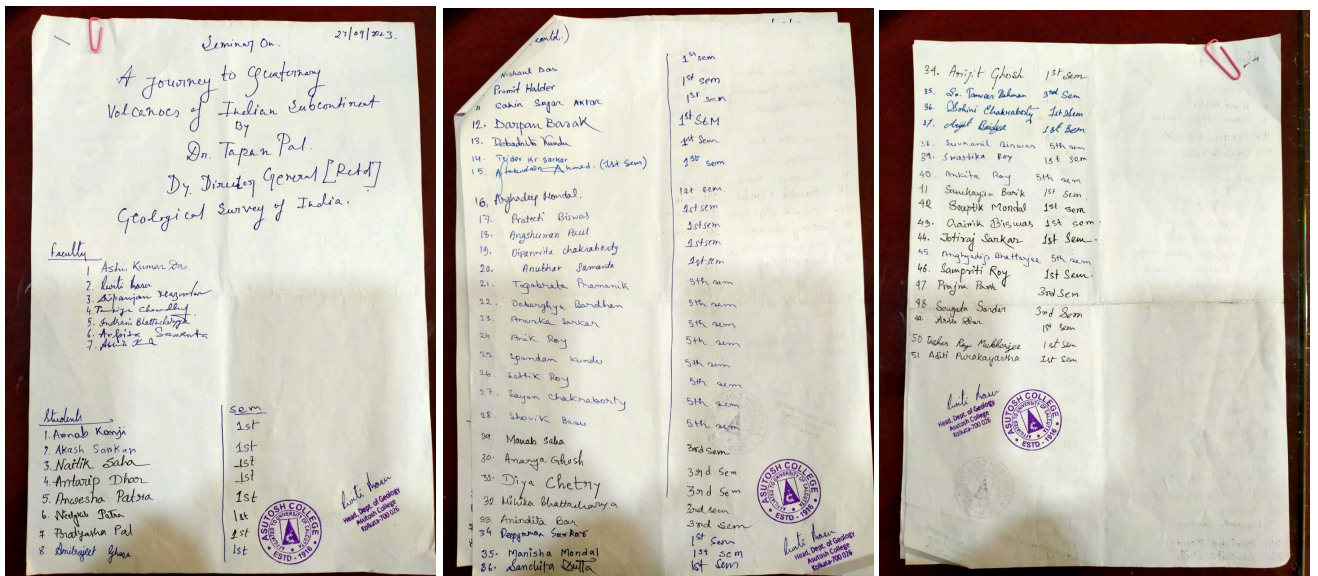 27/09/2023.
Seminar On.
A Journey to Quaternary
Volcanoes of Indian Subcontinent
By
Dr. Tapan Pal.
Dy. Director General [Retd]
Geological Survey of India.
Faculty
1. Ashis Kumar
2.
3. Dipanjan Mazumdar
4. Chowdhury
5. Indrani Bhattacharya
6. Arpita Samanta
7.
Students sem
1. Arnab Kanji 1st
2. Akash Sarkar 1st
3. Naitik Saha 1st
4. Antarip Dhar 1st
5. Anwesha Patra 1st
6. Patra 1st
7. Pratyasha Pal 1st
8 Smitrajeet Ghosh 1st
ASUTOSH COLLEGE
AFFILIATED TO UNIVERSITY OF CALCUTTA
ESTD - 1916
Head, Dept. of Geology
Asutosh College
Kolkata-700 026
contd.)
Nishant Das 1st sem
Promit Halder 1st sem
11. Sahin Sagar Aktar 1st sem
12. Darpan Basak 1st SEM
13. Debadrita Kundu 1st Sem
14. Kr Sarkar
15. Ahmed. (1st Sem) 1st sem
16. Arghadeep Mondal. 1st sem.
17. Prateeti Biswas 1st sem
18. Angshuman Paul 1st sem
19. Dipanwita Chakraborty 1st sem
20. Anubhav Samanta 1st sem
21. Tapabrata Pramanik 5th sem
22. Debarghya Bardhan 5th sem
23. Anuska Sarkar 5th sem
24. Anik Roy 5th sem
25. Spandan Kundu 5th sem
26. Sattik Roy 5th sem
27. Sayan Chakraborty 5th sem
28. Shovik Basu 5th sem
29. Manab Saha 3rd sem
30. Ananya Ghosh 3rd Sem
31. Diya Chetry 3rd Sem
32. Mihika Bhattacharya 3rd sem
33. Anindita Bar 3rd Sem
34 Deepyaman Sarkar 1st Sem
35. Manisha Mondal 1st sem
36. Sanchita Dutta 1st Sem
ASUTOSH COLLEGE
AFFILIATED TO UNIVERSITY OF CALCUTTA
ESTD - 1916
Head, Dept. of Geology
Asutosh College
Kolkata-700 026
34. Arijit Ghosh 1st sem
35. Sk. Tanveer Rahman 3rd Sem
36. Sohini Chakraborty 1st Sem
37. Arijit Baidya 1st Sem
38. Biswas 5th sem
39. Swastika Roy 1st sem
40. Ankita Roy 5th sem
41 Barik 1st Sem
42 Souptik Mondal 1st sem
43. Biswas 1st sem
44. Jotiraj Sarkar 1st Sem.
45. Arghyadip Bhattarjee 5th sem
46. Sampriti Roy 1st Sem.
47. 3rd Sem
48. Sougata Sardar 3rd Sem
49. 1st sem
50 Roy Mukherjee 1st sem
51 Aditi Purakayastha 1st sem
Head, Dept. of Geology
Asutosh College
Kolkata-700 026
ASUTOSH COLLEGE
AFFILIATED TO UNIVERSITY OF CALCUTTA
ESTD - 1916